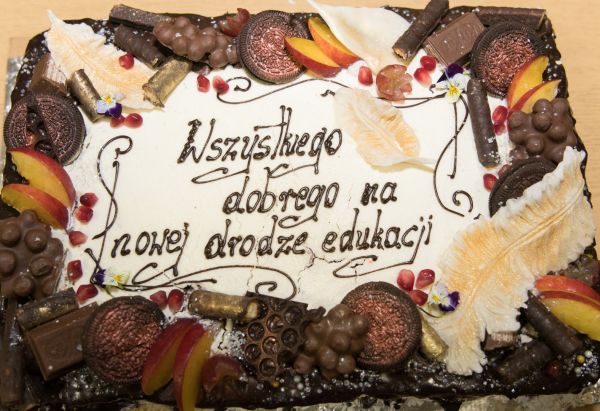 Wszystkiego
dobrego na
nowej drodze edukacji